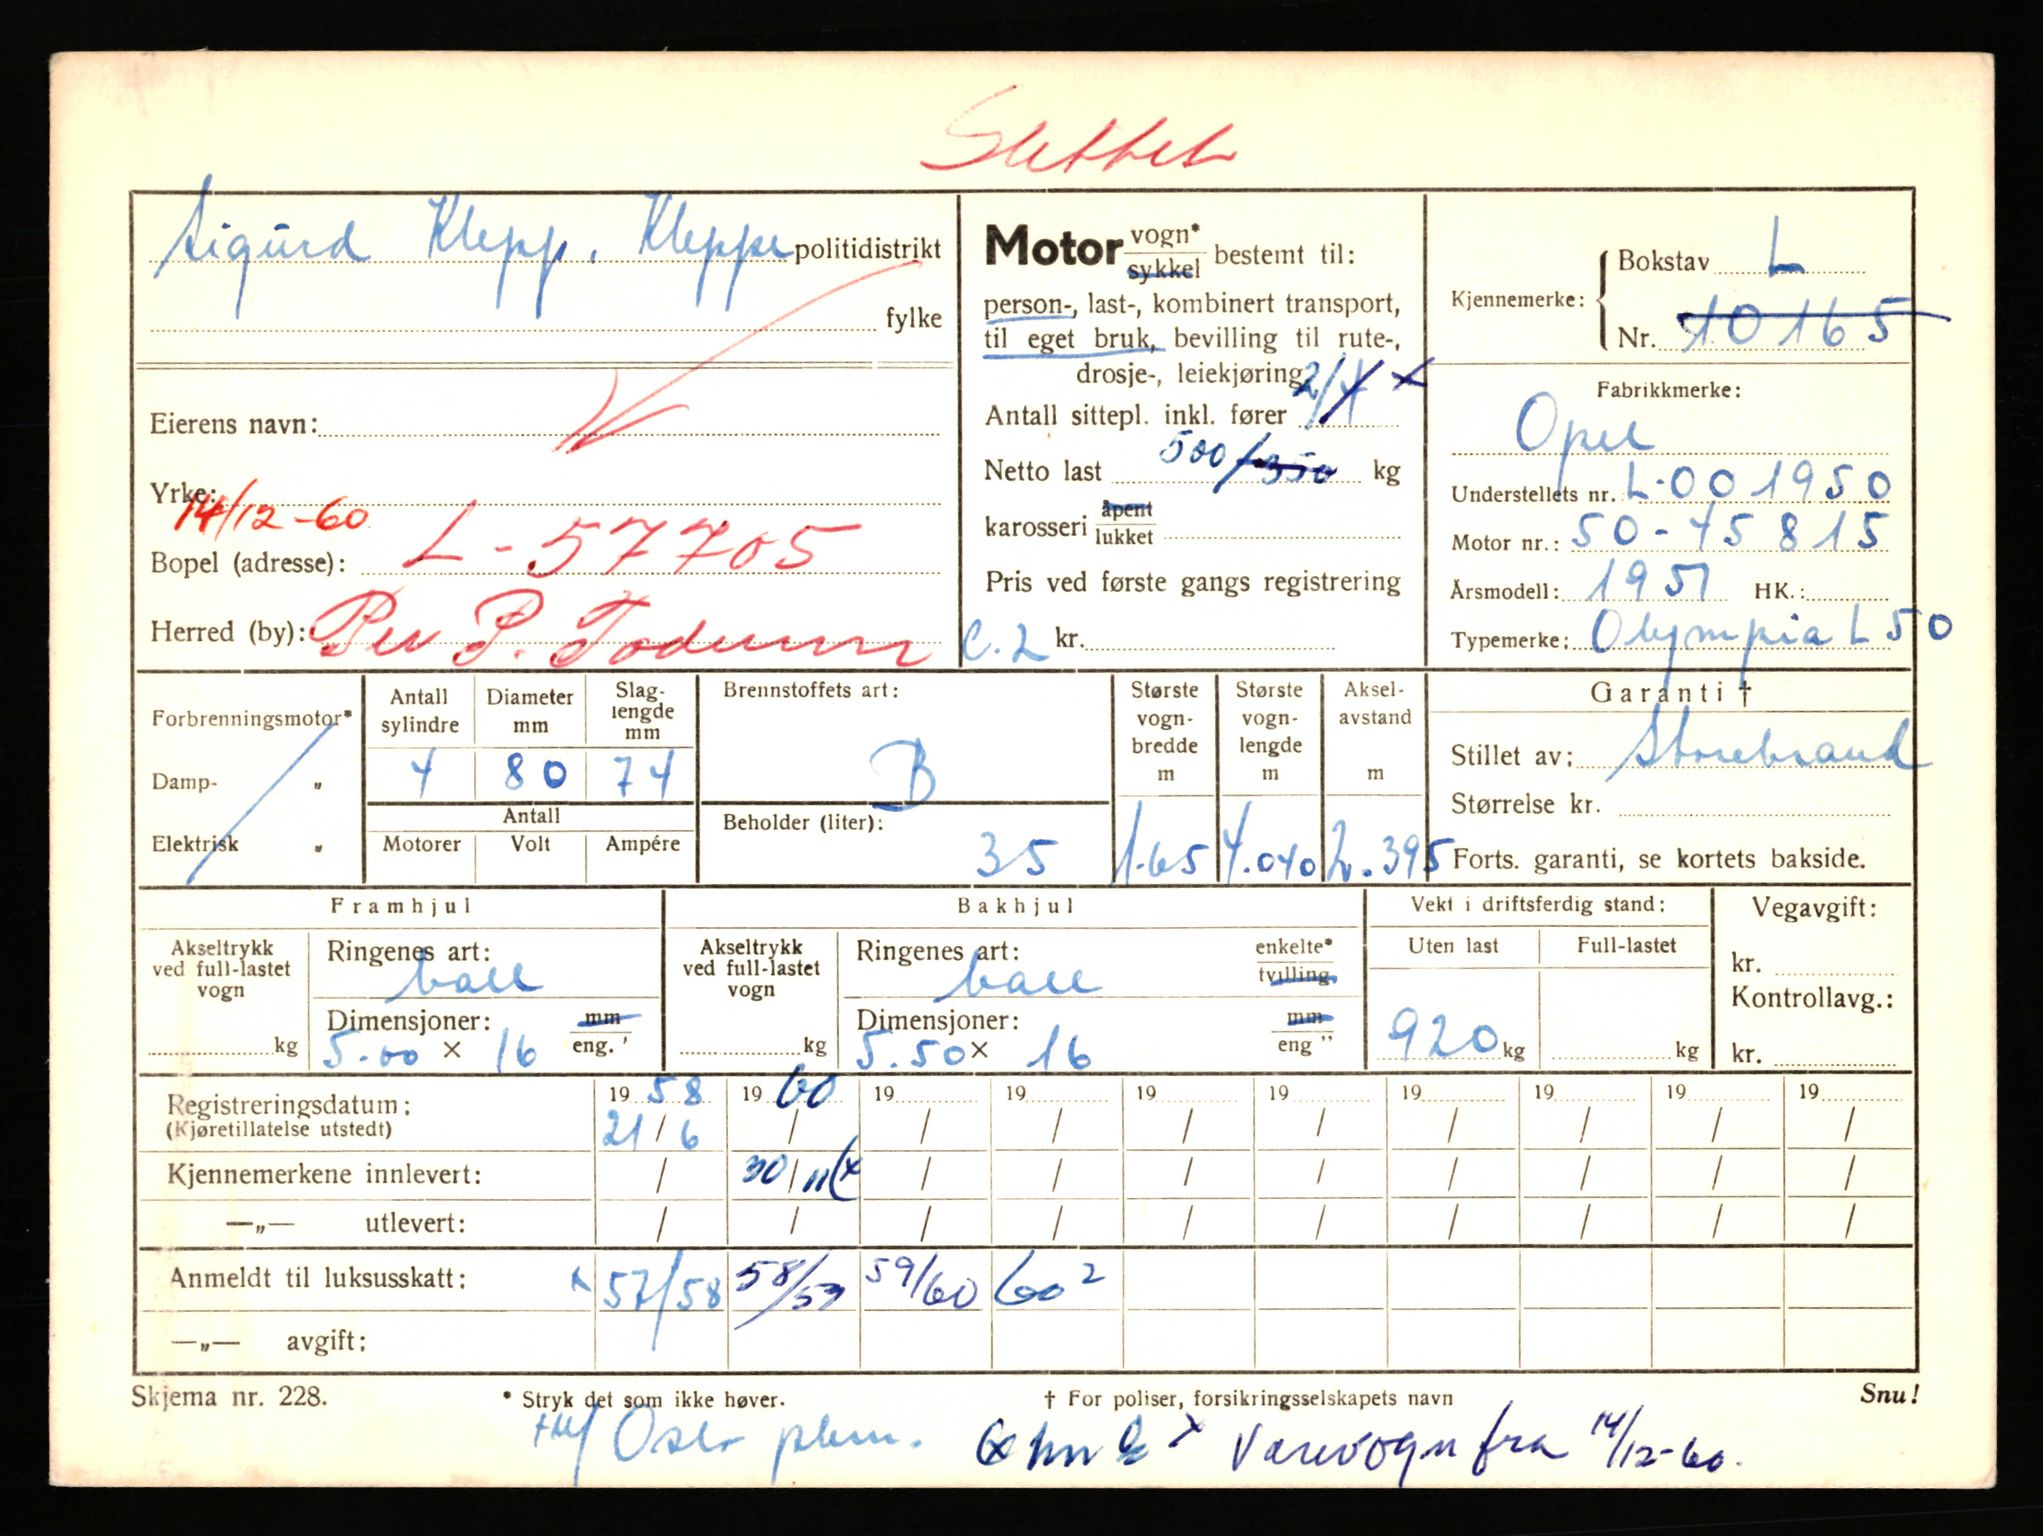 Slettet
Sigurd Klepp, Kleppe politidistrikt
fylke
Eierens navn:
Yrke:
14/12-60
Bopel (adresse): L-57705
Herred (by): Per P. Todnem
Motor vogn* sykkel bestemt til:
person-, last-, kombinert transport,
til eget bruk, bevilling til rute-,
drosje-, leiekjøring
Antall sittepl. inkl. fører 2/4 x
Netto last 500/350 kg
karosseri åpent lukket
Pris ved første gangs registrering
C.2 kr.
Kjennemerke: Bokstav L
Nr. 10165
Fabrikkmerke:
Opel
Understellets nr. L.001950
Motor nr.: 50-45815
Årsmodell: 1951 HK.:
Typemerke: Olympia L 50
Forbrenningsmotor*
Damp- "
Elektrisk "
Antall sylindre Diameter mm Slag-lengde mm
4 80 74
Antall
Motorer Volt Ampére
Brennstoffets art:
B
Beholder (liter):
35
Største vogn-bredde m
1.65
Største vogn-lengde m
4.040
Aksel-avstand m
2.395
Garanti †
Stillet av: Storebrand
Størrelse kr.
Forts. garanti, se kortets bakside.
Framhjul
Akseltrykk ved full-lastet vogn
kg
Ringenes art:
ball
Dimensjoner: mm
5.00 x 16 eng. '
Bakhjul
Akseltrykk ved full-lastet vogn
kg
Ringenes art: enkelte*
ball tvilling
Dimensjoner: mm
5.50 x 16 eng "
Vekt i driftsferdig stand:
Uten last Full-lastet
920 kg kg
Vegavgift:
kr.
Kontrollavg.:
kr.
Registreringsdatum: 19 58 19 60 19 19 19 19 19 19 19 19
(Kjøretillatelse utstedt) 21/6 / / / / / / / / /
Kjennemerkene innlevert: / 30/11 (x / / / / / / / /
—„— utlevert: / / / / / / / / / /
Anmeldt til luksusskatt: x 57/58 58/59 59/60 60 2
—„— avgift:
Skjema nr. 228. * Stryk det som ikke høver. † For poliser, forsikringsselskapets navn Snu!
Oslo x Varevogn fra 14/12-60.